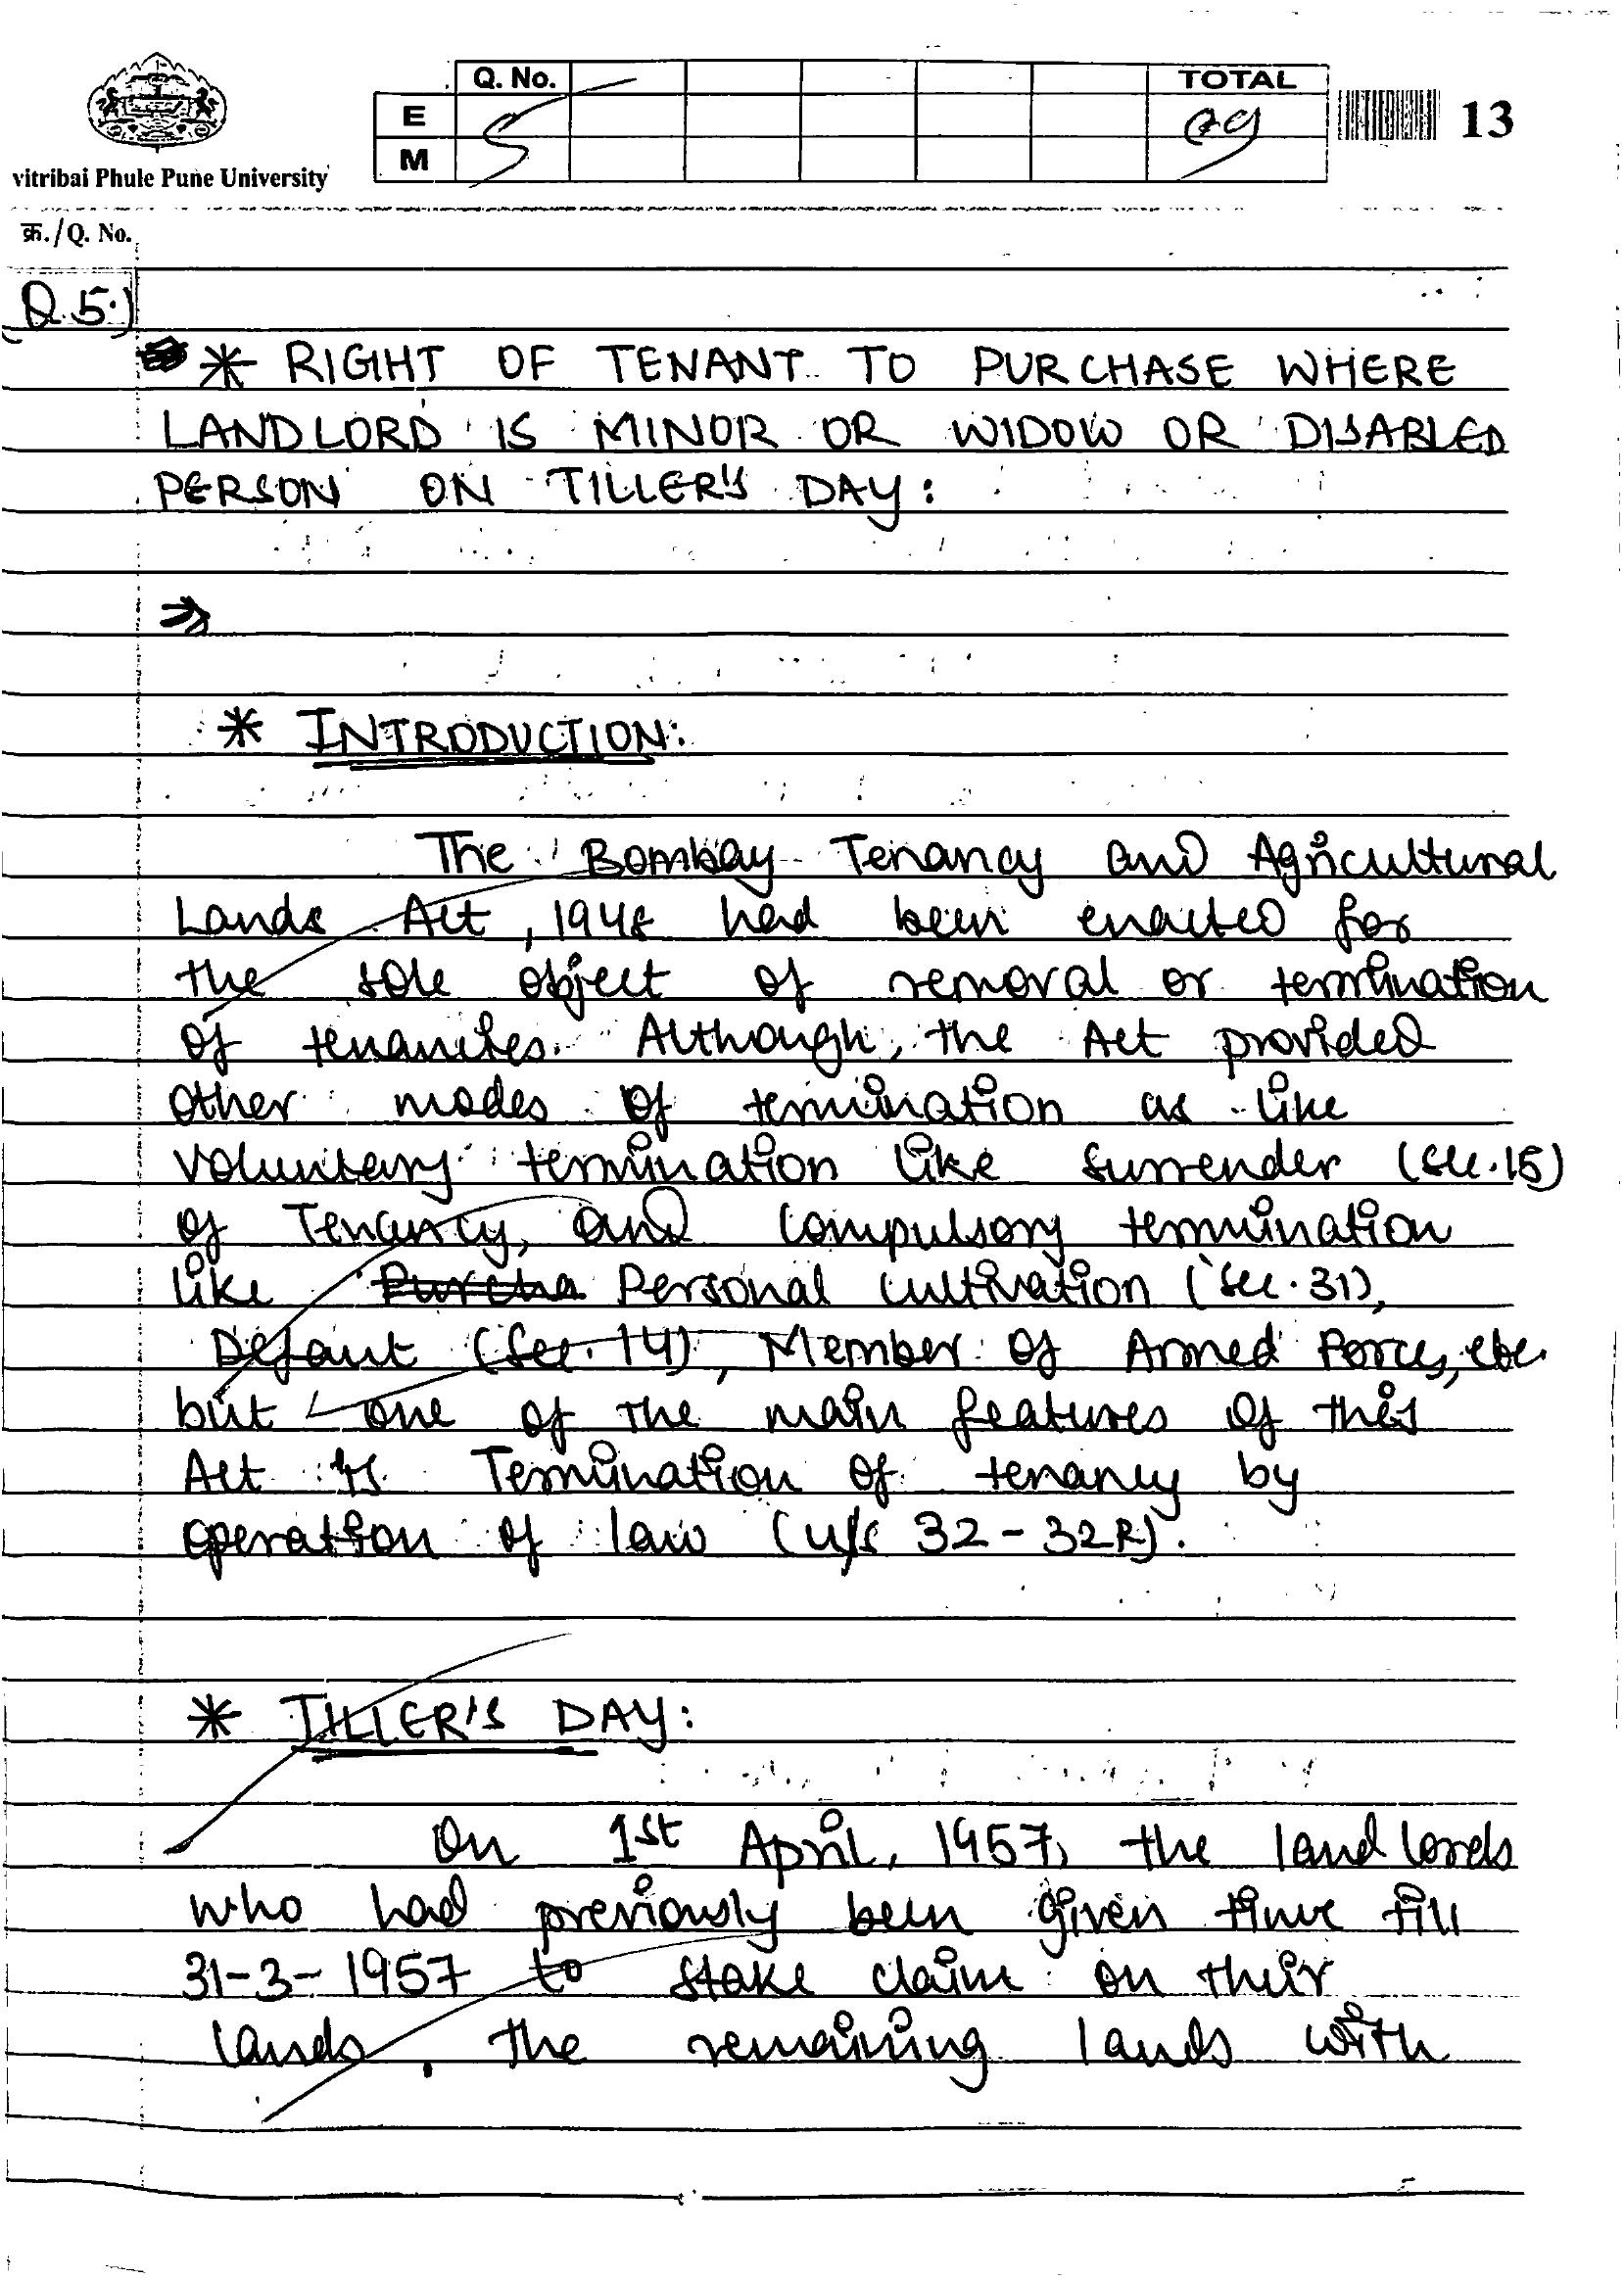 Q. No. TOTAL
E 5 09
M
13
vitribai Phule Pune University
क्र./Q. No.
Q.5.)
* RIGHT OF TENANT TO PURCHASE WHERE
LANDLORD IS MINOR OR WIDOW OR DISABLED
PERSON ON TILLER'S DAY:
* INTRODUCTION:
The Bombay Tenancy and Agricultural
Lands Act, 1948 had been enacted for
the sole object of removal or termination
of tenancies. Although, the Act provided
other modes of termination as like
voluntary termination like surrender (sec.15)
of Tenancy, and compulsory termination
like Purcha Personal cultivation (sec.31),
Defaut (Sec. 14), Member of Armed Forces, etc.
but one of the main features of this
Act is Termination of tenancy by
operation of law (u/s 32-32R).
* TILLER'S DAY:
On 1st April, 1957, the landlords
who had previously been given time till
31-3-1957 to stake claim on their
lands. the remaining lands with